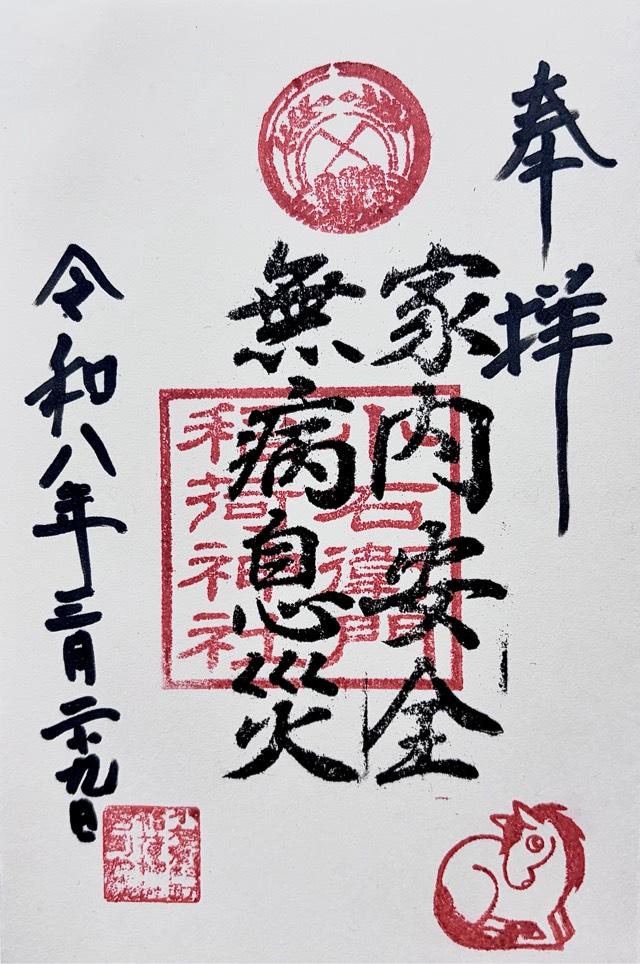 奉拝
家内安全
無病息災
小右衛門
稲荷神社
令和八年三月二十九日